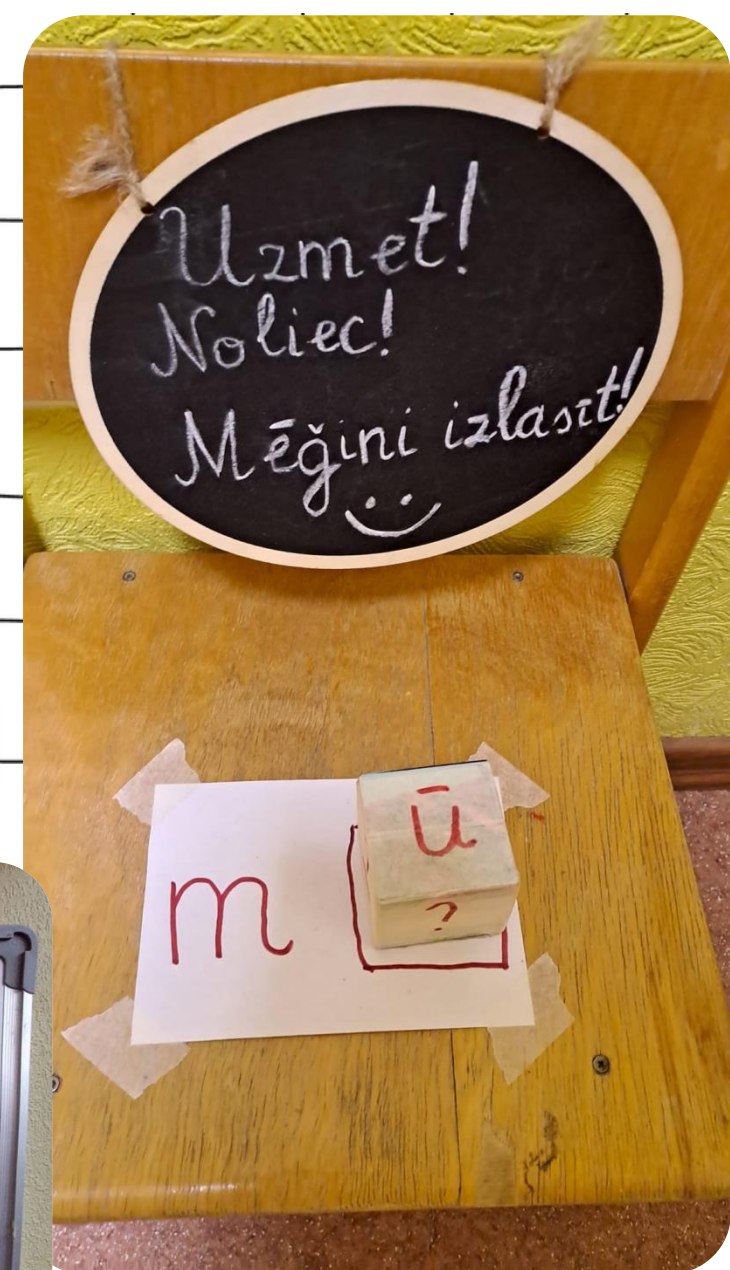 Uzmet!
Noliec!
Mēģini izlasīt!
m ū
?